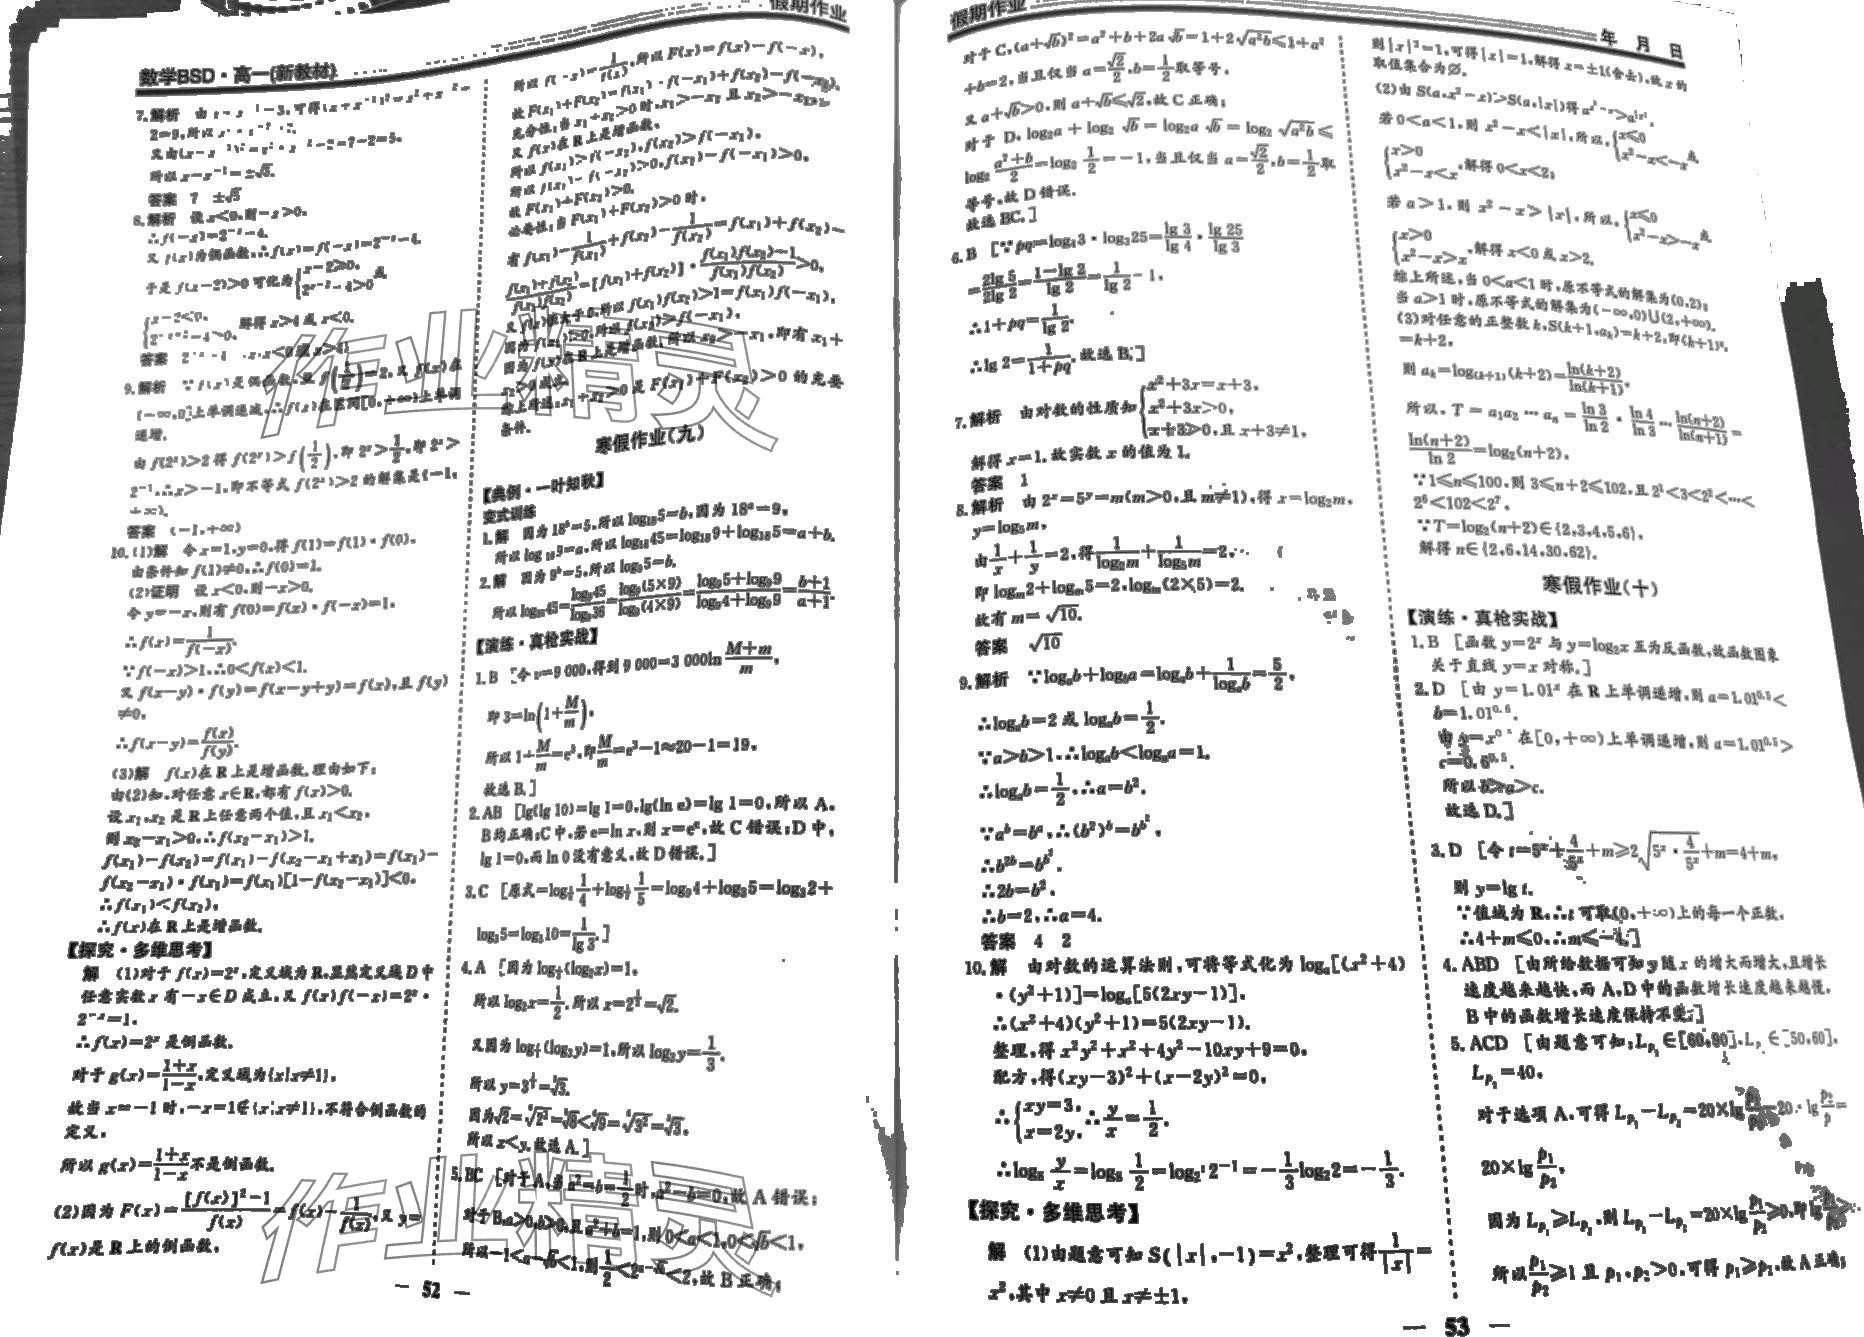 假期作业
数学BSD·高一(新教材)
7.解析
所以x-x⁻¹=±√5.
答案 7 ±√5
8.解析 设x<0,则-x>0,
∴f(-x)=2⁻ˣ-4.
又f(x)为偶函数,∴f(x)=f(-x)=2⁻ˣ-4,
于是f(x-2)>0可化为{x-2≥0, 2ˣ⁻²-4>0 或
解得x>4或x<0.
答案
9.解析 ∵f(x)是偶函数,且f(1/2)=2,又f(x)在
(-∞,0]上单调递减,∴f(x)在区间[0,+∞)上单调
递增,
由f(2ˣ)>2得f(2ˣ)>f(1/2),即2ˣ>1/2,即2ˣ>
2⁻¹,∴x>-1,即不等式f(2ˣ)>2的解集是(-1,
+∞).
答案 (-1,+∞)
10.(1)解 令x=1,y=0,得f(1)=f(1)·f(0),
由条件知f(1)≠0,∴f(0)=1.
(2)证明 设x<0,则-x>0,
令y=-x,则有f(0)=f(x)·f(-x)=1,
∴f(x)=1/f(-x).
∵f(-x)>1,∴0<f(x)<1.
又f(x-y)·f(y)=f(x-y+y)=f(x),且f(y)
≠0,
∴f(x-y)=f(x)/f(y).
(3)解 f(x)在R上是增函数,理由如下:
由(2)知,对任意x∈R,都有f(x)>0,
设x₁,x₂是R上任意两个值,且x₁<x₂,
则x₂-x₁>0,∴f(x₂-x₁)>1,
f(x₁)-f(x₂)=f(x₁)-f(x₂-x₁+x₁)=f(x₁)-
f(x₂-x₁)·f(x₁)=f(x₁)[1-f(x₂-x₁)]<0.
∴f(x₁)<f(x₂),
∴f(x)在R上是增函数.
【探究·多维思考】
解 (1)对于f(x)=2ˣ,定义域为R,显然定义域D中
任意实数x有-x∈D成立,又f(x)f(-x)=2ˣ·
2⁻ˣ=1,
∴f(x)=2ˣ是倒函数,
对于g(x)=(1+x)/(1-x),定义域为{x|x≠1},
故当x=-1时,-x=1∉{x|x≠1},不符合倒函数的
定义,
所以g(x)=(1+x)/(1-x)不是倒函数.
(2)因为F(x)=([f(x)]²-1)/f(x)=f(x)-1/f(x),又y=
f(x)是R上的倒函数,
所以f(-x)=1/f(x),所以F(x)=f(x)-f(-x),
故F(x₁)+F(x₂)=f(x₁)-f(-x₁)+f(x₂)-f(-x₂),
充分性:当x₁+x₂>0时,x₁>-x₂且x₂>-x₁,
又f(x)在R上是增函数,
所以f(x₁)>f(-x₂),f(x₂)>f(-x₁),
所以f(x₁)-f(-x₂)>0,f(x₂)-f(-x₁)>0,
故F(x₁)+F(x₂)>0.
必要性:当F(x₁)+F(x₂)>0时,
有f(x₁)-1/f(x₁)+f(x₂)-1/f(x₂)=f(x₁)+f(x₂)-
(f(x₁)+f(x₂))/(f(x₁)f(x₂))=[f(x₁)+f(x₂)]·(f(x₁)f(x₂)-1)/(f(x₁)f(x₂))>0,
又f(x)恒大于0,所以f(x₁)f(x₂)>1=f(x₁)f(-x₁),
因为f(x₁)>0,所以f(x₂)>f(-x₁),
因为f(x)在R上是增函数,所以x₂>-x₁,即有x₁+
x₂>0成立.
综上所述,x₁+x₂>0是F(x₁)+F(x₂)>0的充要
条件.
寒假作业(九)
【典例·一叶知秋】
变式训练
1.解 因为18ᵇ=5,所以log₁₈5=b,因为18ᵃ=9,
所以log₁₈9=a,所以log₁₈45=log₁₈9+log₁₈5=a+b.
2.解 因为9ᵇ=5,所以log₉5=b.
所以log₃₆45=log₉45/log₉36=log₉(5×9)/log₉(4×9)=(log₉5+log₉9)/(log₉4+log₉9)=(b+1)/(a+1).
【演练·真枪实战】
1.B [令v=9 000,得到9 000=3 000ln (M+m)/m,
即3=ln(1+M/m),
所以1+M/m=e³,即M/m=e³-1≈20-1=19,
故选B.]
2.AB [lg(lg 10)=lg 1=0,lg(ln e)=lg 1=0,所以A,
B均正确;C中,若e=ln x,则x=eᵉ,故C错误;D中,
lg 1=0,而ln 0没有意义,故D错误.]
3.C
log₃5=log₃10=1/lg 3.]
4.A
所以log₂x=1/2,所以x=2^(1/2)=√2.
所以log₃y=1/3,
所以y=3^(1/3)=∛3.
所以x<y.故选A.]
5.BC [对于A,当a²=b=1/2时,a²-b=0,故A错误;
对于B,a>0,b>0,且a²+b=1,则0<a<1,0<√b<1,
所以-1<a-√b<1,则1/2<2^(a-√b)<2,故B正确;
— 52 —
假期作业
年 月 日
对于C,(a+√b)²=a²+b+2a√b=1+2√(a²b)≤1+a²
+b=2,当且仅当a=√2/2,b=1/2取等号,
又a+√b>0,则a+√b≤√2,故C正确;
对于D,log₂a+log₂√b=log₂a√b=log₂√(a²b)≤
log₂ (a²+b)/2=log₂ 1/2=-1,当且仅当a=√2/2,b=1/2取
等号,故D错误.
故选BC.]
6.B [∵pq=log₄3·log₃25=lg 3/lg 4·lg 25/lg 3
=2lg 5/2lg 2=(1-lg 2)/lg 2=1/lg 2-1,
∴1+pq=1/lg 2,
∴lg 2=1/(1+pq).故选B.]
7.解析 由对数的性质知{x²+3x=x+3, x²+3x>0, x+3>0,且x+3≠1,
解得x=1.故实数x的值为1.
答案 1
8.解析 由2ˣ=5ʸ=m(m>0,且m≠1),得x=log₂m,
y=log₅m,
由1/x+1/y=2,得1/log₂m+1/log₅m=2,
即logₘ2+logₘ5=2,logₘ(2×5)=2,
故有m=√10.
答案 √10
9.解析 ∵logₐb+log_b a=logₐb+1/logₐb=5/2,
∴logₐb=2或logₐb=1/2.
∵a>b>1,∴logₐb<logₐa=1,
∴logₐb=1/2,∴a=b².
∵aᵇ=bᵃ,∴(b²)ᵇ=b^(b²),
∴b²ᵇ=b^(b²),
∴2b=b²,
∴b=2,∴a=4.
答案 4 2
10.解 由对数的运算法则,可将等式化为logₐ[(x²+4)
·(y²+1)]=logₐ[5(2xy-1)],
∴(x²+4)(y²+1)=5(2xy-1).
整理,得x²y²+x²+4y²-10xy+9=0,
配方,得(xy-3)²+(x-2y)²=0,
∴{xy=3, x=2y, ∴y/x=1/2.
∴log₈ y/x=log₈ 1/2=log₂³2⁻¹=-1/3log₂2=-1/3.
【探究·多维思考】
解 (1)由题意可知S(|x|,-1)=x²,整理可得1/|x|=
x²,其中x≠0且x≠±1,
则|x|³=1,可得|x|=1,解得x=±1(舍去),故x的
取值集合为∅.
(2)由S(a,x²-x)>S(a,|x|)得
若0<a<1,则x²-x<|x|,所以,{x≤0 x²-x<-x 或
{x>0 x²-x<x,解得0<x<2;
若a>1,则x²-x>|x|,所以,{x≤0 x²-x>-x 或
{x>0 x²-x>x,解得x<0或x>2,
综上所述,当0<a<1时,原不等式的解集为(0,2);
当a>1时,原不等式的解集为(-∞,0)∪(2,+∞).
(3)对任意的正整数k,S(k+1,aₖ)=k+2,即(k+1)^aₖ
=k+2,
则aₖ=log₍ₖ₊₁₎(k+2)=ln(k+2)/ln(k+1),
所以,T=a₁a₂…aₙ=ln 3/ln 2·ln 4/ln 3…ln(n+2)/ln(n+1)=
ln(n+2)/ln 2=log₂(n+2),
∵1≤n≤100,则3≤n+2≤102,且2¹<3<2²<…<
2⁶<102<2⁷,
∵T=log₂(n+2)∈{2,3,4,5,6},
解得n∈{2,6,14,30,62}.
寒假作业(十)
【演练·真枪实战】
1.B [函数y=2ˣ与y=log₂x互为反函数,故函数图象
关于直线y=x对称.]
2.D [由y=1.01ˣ在R上单调递增,则a=1.01⁰·⁵<
b=1.01⁰·⁶,
由y=x⁰·⁵在[0,+∞)上单调递增,则a=1.01⁰·⁵>
c=0.6⁰·⁵.
所以b>a>c.
故选D.]
3.D [令t=5ˣ+4/5ˣ+m≥2√(5ˣ·4/5ˣ)+m=4+m,
则y=lg t.
∵值域为R,∴t可取(0,+∞)上的每一个正数,
∴4+m≤0,∴m≤-4.]
4.ABD [由所给数据可知y随x的增大而增大,且增长
速度越来越快,而A,D中的函数增长速度越来越慢,
B中的函数增长速度保持不变.]
5.ACD [由题意可知:Lp₁∈[60,90],Lp₂∈[50,60],
Lp₃=40,
对于选项A,可得Lp₁-Lp₂=20×lg
20×lg p₁/p₂,
因为Lp₁≥Lp₂,则Lp₁-Lp₂=20×lg p₁/p₂≥0,即lg p₁/p₂≥0,
所以p₁/p₂≥1且p₁,p₂>0,可得p₁≥p₂,故A正确;
— 53 —
作业精灵
作业精灵